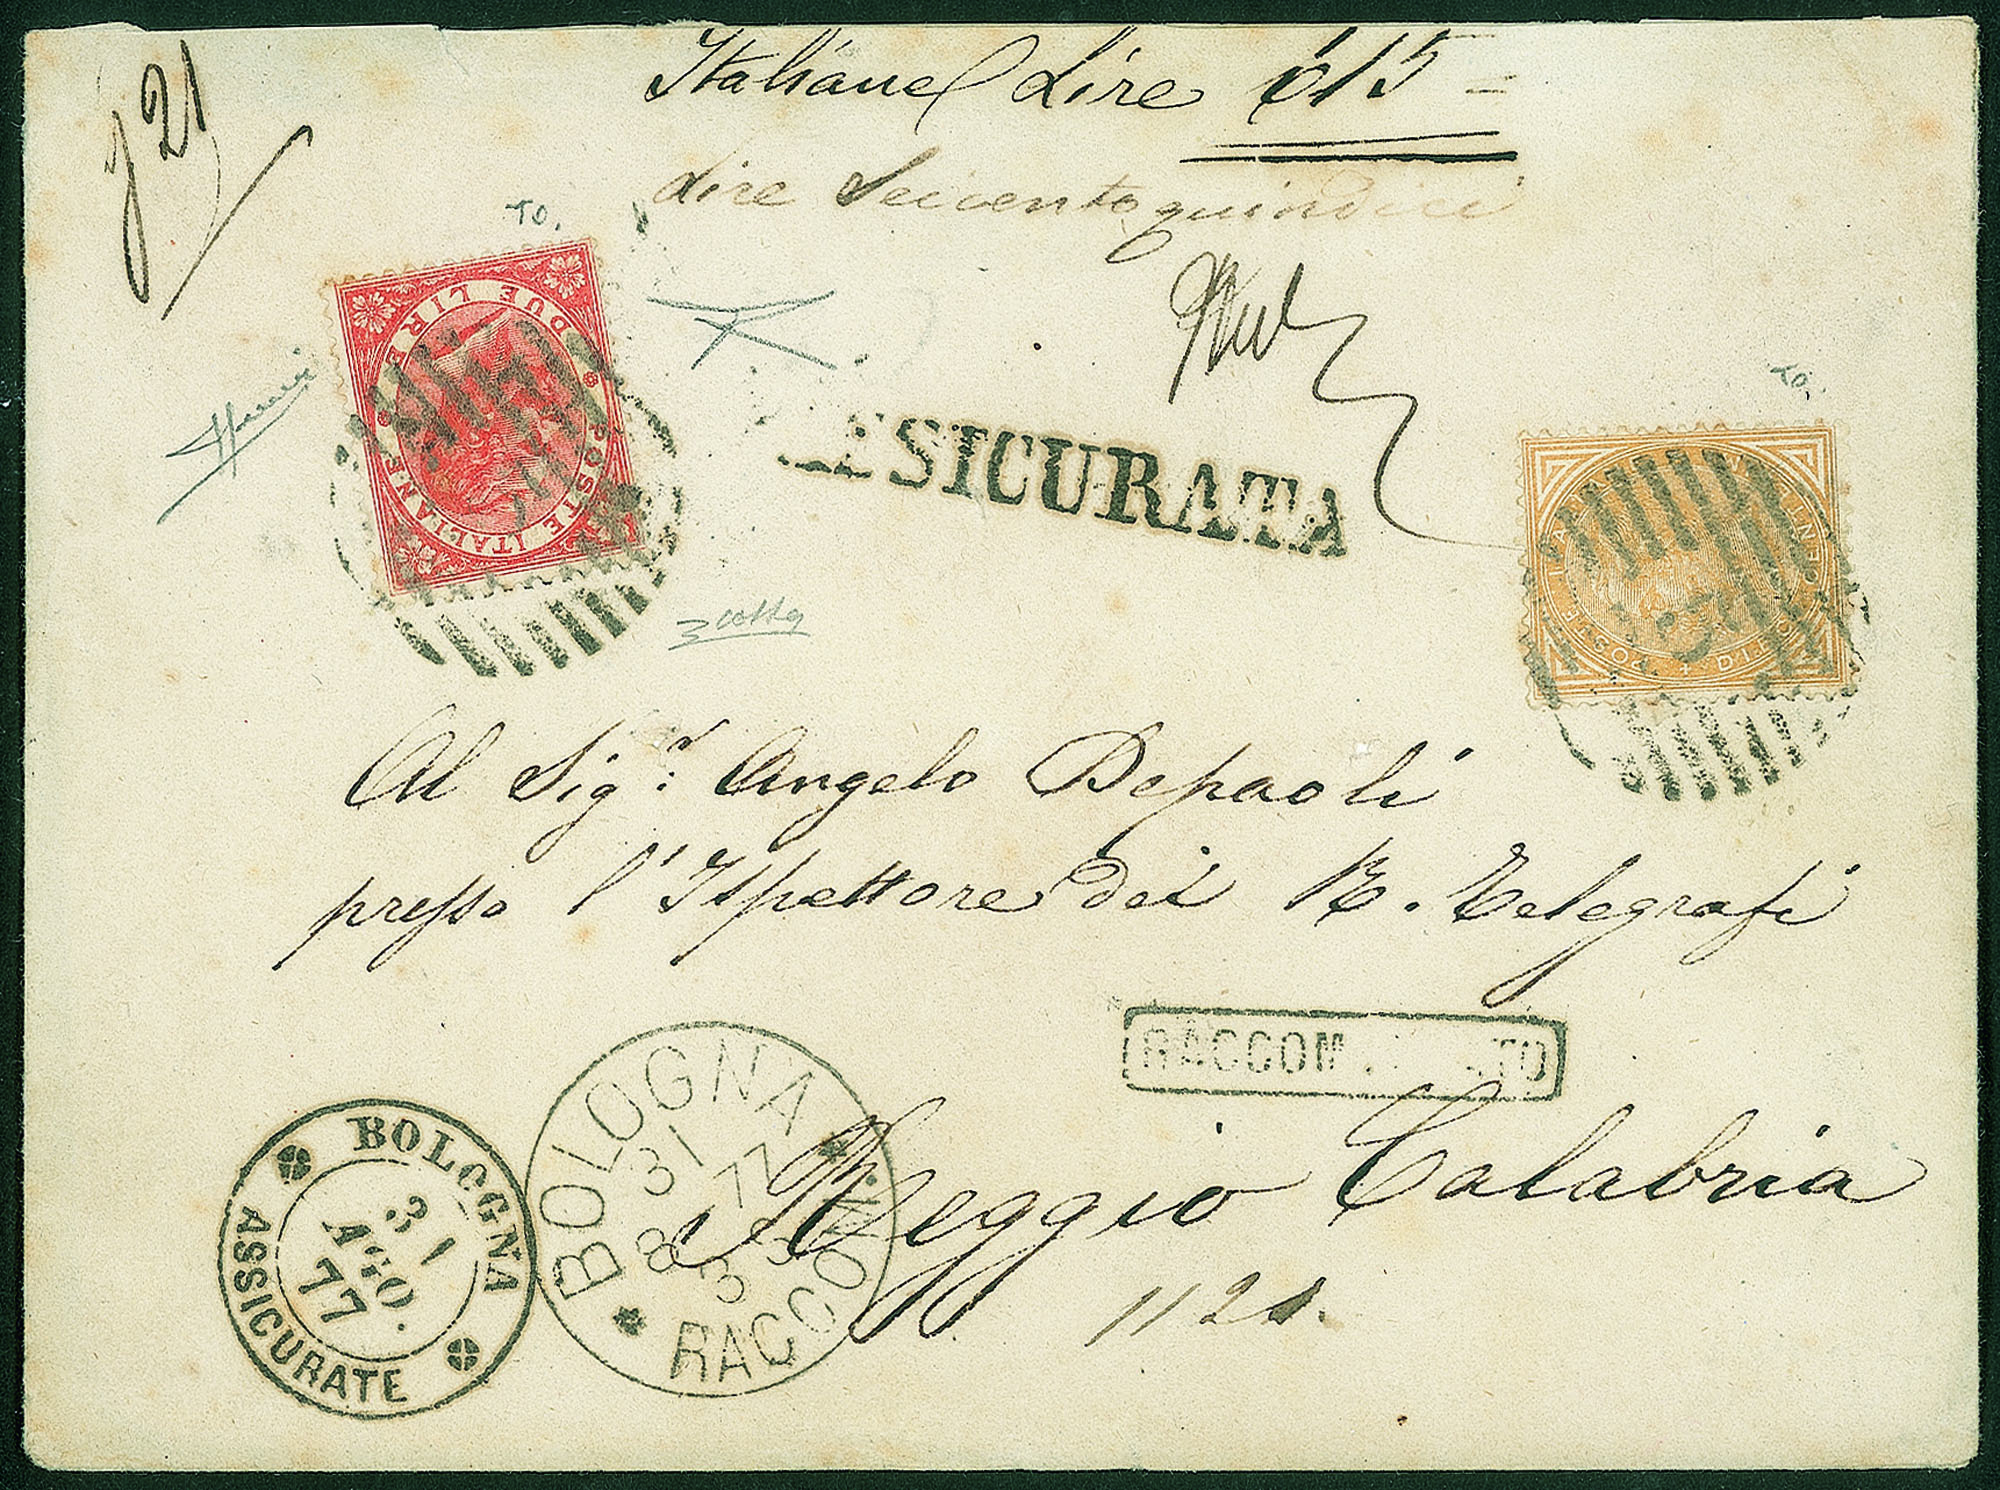 Italiane Lire 615 =
Lire Seicentoquindici
721
TO.
TO.
DUE LIRE
POSTE ITALIANE
SICURATA
Al Sig.r Angelo Depaoli
presso l'Ispettore dei R. Telegrafi
RACCOM
TO
Reggio Calabria
1121.
BOLOGNA
31
AGO.
77
ASSICURATE
BOLOGNA
31
8 77
3 S
RACCOM.